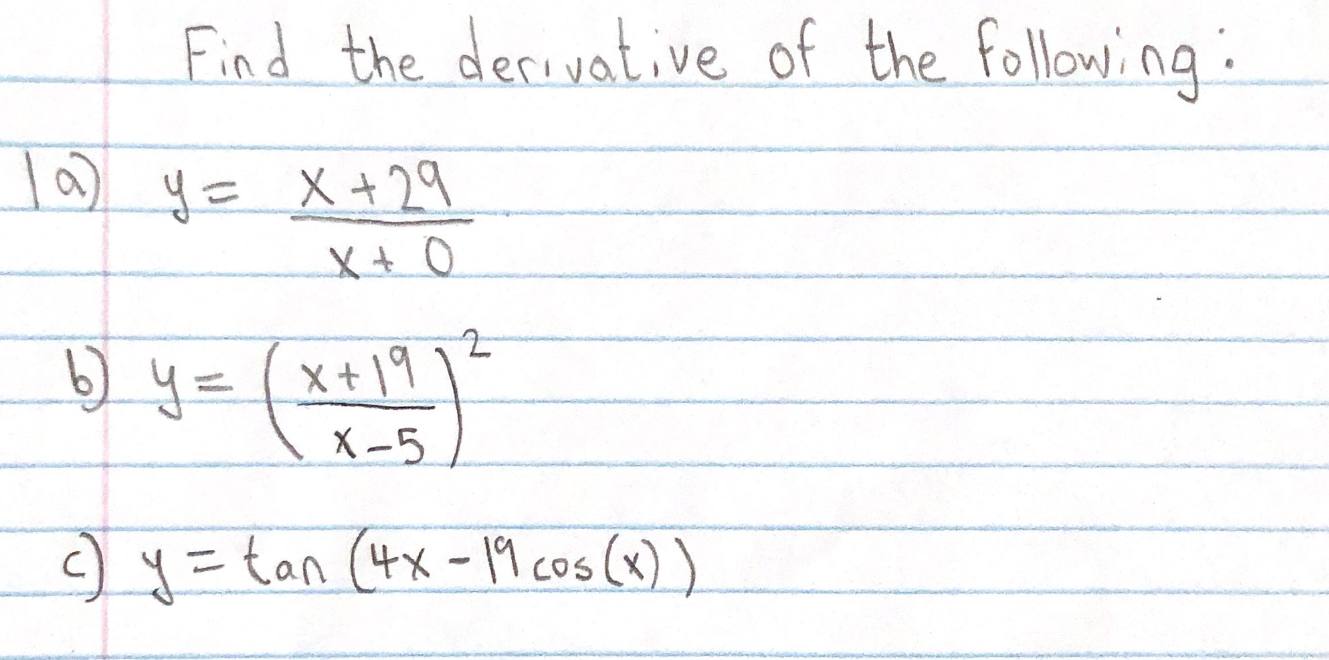 Find the derivative of the following:
1a) y = x+29
x+0
b) y = (x+19)²
x-5
c) y = tan (4x - 19 cos(x))